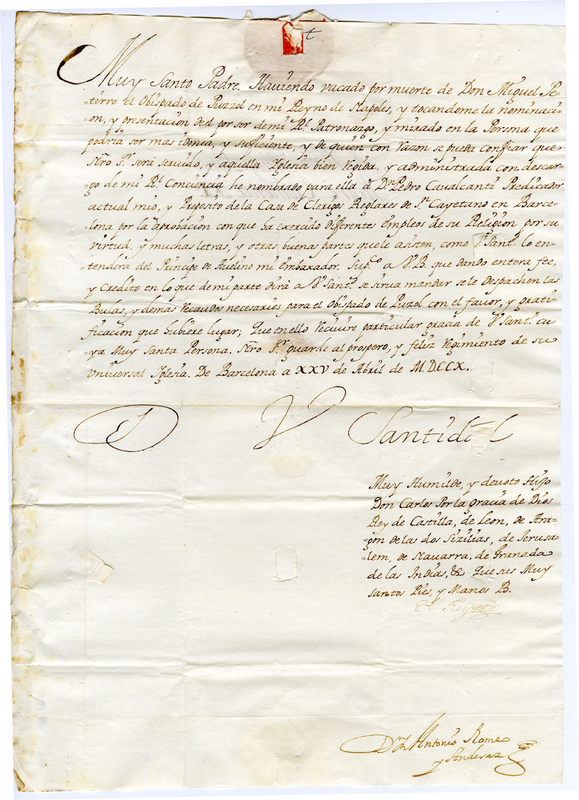 t
Muy Santo Padre. Haviendo vacado por muerte de Don Miguel Pe
turro el Obispado de Puzol en mi Reyno de Napoles, y tocandome la nominaci
on, y presentacion del por ser de mi Rl. Patronazgo, y mirado en la Persona que
podria ser mas idonia, y suficiente, y de quien con razon se pueda confiar que
Nro Sr. será servido, y aquella Yglesia bien regida, y administrada con descar
go de mi Rl. Conciencia he nombrado para ella á Dn. Pedro Cavalcanti Predicador
actual mio, y Preposito de la Casa de Clerigos Reglares de Sn. Cayetano en Barce
lona por la aprobacion con que ha exercido diferentes Empleos de su Religion por su
virtud, y muchas letras, y otras buenas partes que le asisten, como Vª Santd. lo en
tenderá del Principe de Avelino mi Embaxador. Supco. a V.B. que dando entera fee,
y Credito en lo que de mi parte dirá a Vª Santd. se sirva mandar se le despachen las
Bulas, y demas recaudos necesarios para el Obispado de Puzol con el favor, y grati
ficacion que hubiere lugar; Que en ello recivire particular gracia de Vª Santd. cu
ya Muy Santa Persona. Nro Sr. guarde al prospero, y feliz regimiento de su
Universal Yglesia. De Barcelona a XXV de Abril de MDCCX.
D V Santidd
Muy Humilde, y devoto Hijo
Don Carlos Por la gracia de Dios
Rey de Castilla, de Leon, de Ara
gon de las dos Sizilias, de Jerusa
lem, de Navarra, de Granada
de las Indias, & Que sus Muy
Santos Pies, y Manos B.
El Rey
Dn. Antonio Romeo
y Anderaz